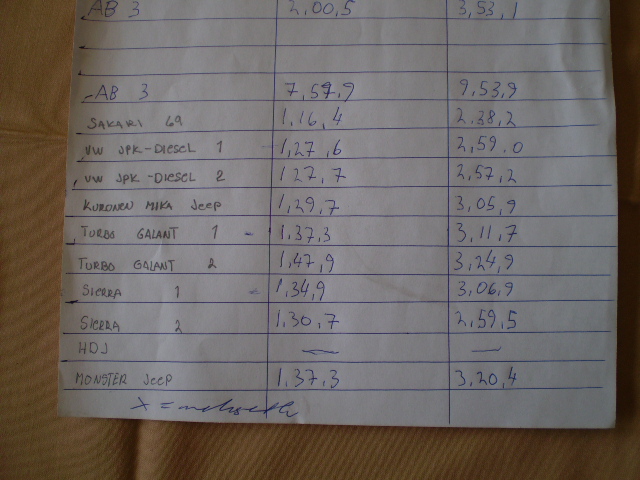 AB 3 2,00,5 3,53,1
-AB 3 7,59,9 9,53,9
SAKARI 69 1,16,4 2,38,2
VW JPK-DIESEL 1 1,27,6 2,59.0
VW JPK-DIESEL 2 1 27,7 2,57,2
KURONEN MIKA JEEP 1,29,7 3,05,9
TURBO GALANT 1 - 1,37,3 3,11,7
TURBO GALANT 2 1,47,9 3,24,9
SIERRA 1 - 1,34,9 3,06,9
SIERRA 2 1,30,7 2,59,5
HDJ — —
MONSTER JEEP 1,37,3 3,20,4
X =